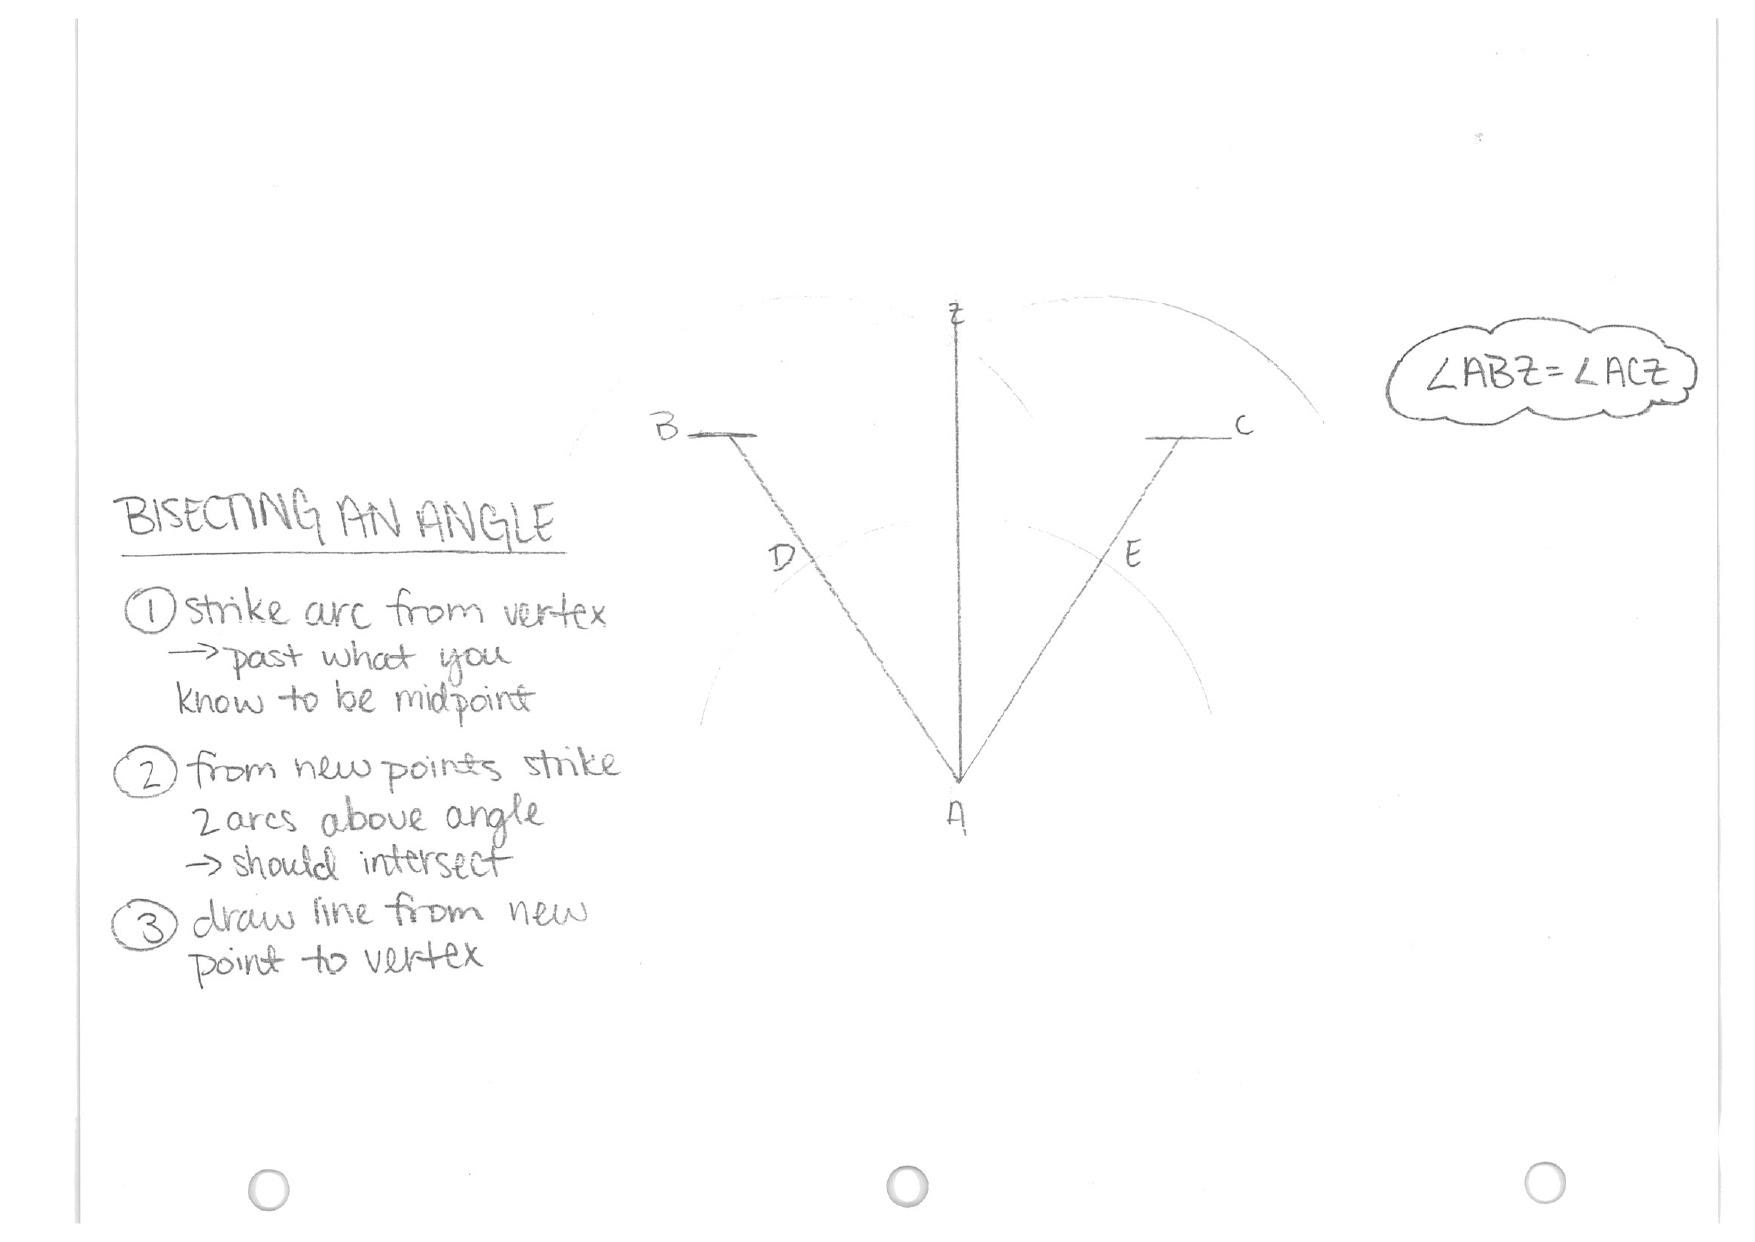 Z
∠ABZ=∠ACZ
B
C
BISECTING AN ANGLE
D
E
① strike arc from vertex
→ past what you
know to be midpoint
② from new points strike
2 arcs above angle
→ should intersect
A
③ draw line from new
point to vertex